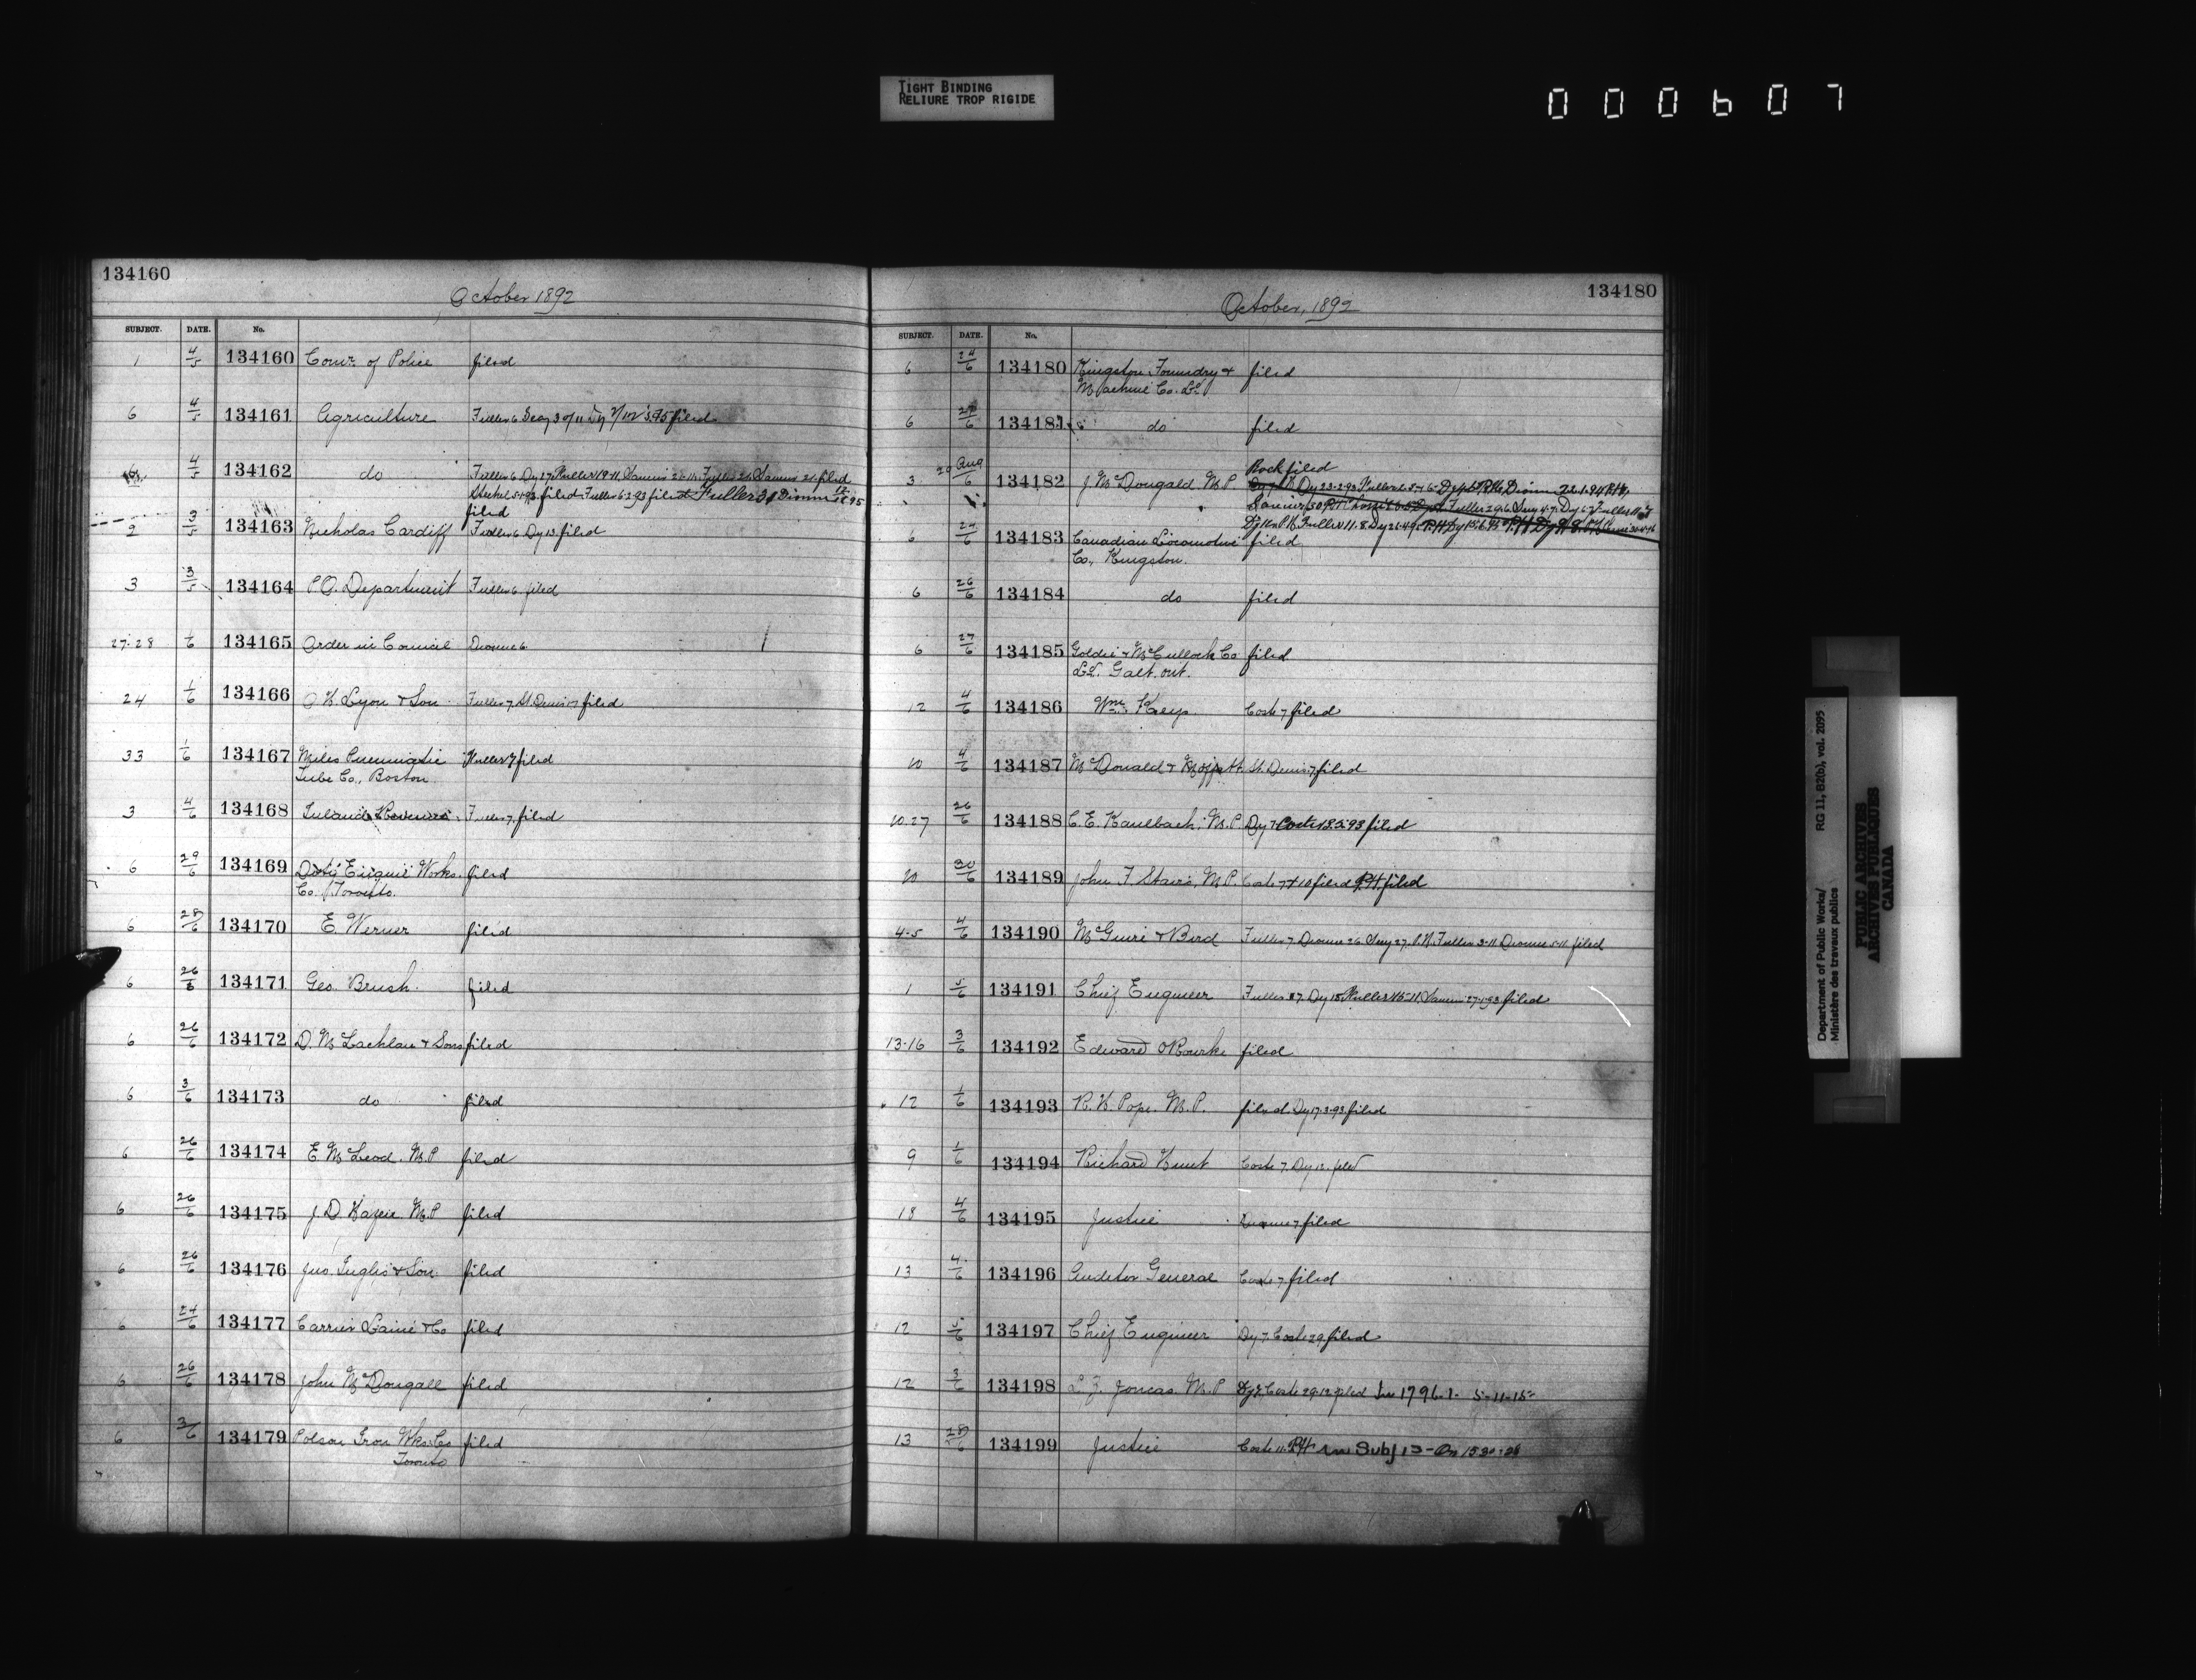 TIGHT BINDING
RELIURE TROP RIGIDE
000607
134160
October 1892
SUBJECT. DATE. No.
1 4/5 134160 Comr. of Police filed
6 4/5 134161 Agriculture Fuller 6 filed
4/5 134162 do
filed
2 3/5 134163 Nicholas Cardiff Fuller 6 Dy 13 filed
3 3/5 134164 P.O. Department Fuller 6 filed
27-28 1/6 134165 Order in Council Dionne 6
24 1/6 134166 Lyon & Son Fuller 7 St. Denis 7 filed
33 1/6 134167 Miles Pneumatic Fuller 7 filed
Tube Co., Boston
3 4/6 134168 Inland Revenue Fuller 7 filed
6 29/6 134169 Doty Engine Works filed
Co. Toronto.
6 28/6 134170 E. Werner filed
6 26/6 134171 Geo. Brush. filed
6 26/6 134172 D. McLachlan & Sons filed
6 3/6 134173 do filed
6 26/6 134174 E. McLeod. M.P filed
6 26/6 134175 J. D. Hazen M.P filed
6 26/6 134176 Jno. Inglis & Son filed
6 24/6 134177 Carrier Lainé & Co filed
6 26/6 134178 John McDougall filed
6 3/6 134179 Polson Iron Wks. Co filed
Toronto
134180
October, 1892
SUBJECT. DATE. No.
6 24/6 134180 Kingston Foundry & filed
Machine Co. Ld.
6 134181 do filed
Rock filed
3 29 Aug/6 134182 J. McDougald. M.P.
6 24/6 134183 Canadian Locomotive filed
Co., Kingston.
6 26/6 134184 do filed
6 27/6 134185 Goldie & McCulloch Co filed
Ld. Galt. Ont.
12 4/6 134186 Wm. Keys Coste 7 filed
10 4/6 134187 McDonald & Moffatt St. Denis 7 filed
10.27 26/6 134188 C. E. Kaulbach, M.P Dy 7 Coste 13.5.93 filed
10 30/6 134189 John F. Stairs, M.P. Coste 7 & 10 filed P.H. filed
4-5 4/6 134190 McGuire & Bird Fuller 7 Dionne 26 27. P.H. Fuller 3-11 Dionne 5-11 filed
1 5/6 134191 Chief Engineer filed
13-16 3/6 134192 Edward O'Rourke filed
12 1/6 134193 R. H. Pope. M.P. filed Dy 17.3.93 filed
9 1/6 134194 Richard Hunt Coste 7. Dy 12. filed
18 4/6 134195 Justice Dionne 7 filed
13 4/6 134196 Auditor General Coste 7 filed
12 5/6 134197 Chief Engineer Dy 7. Coste 29 filed
12 3/6 134198 L. Z. Joncas. M.P Dy 7. Coste 29.12 filed In 1796-1- 5-11-15
13 28/6 134199 Justice Coste 11. P.H. Subj 13 -
Department of Public Works/
Ministère des travaux publics
RG 11, B2(b), vol. 2095
PUBLIC ARCHIVES
ARCHIVES PUBLIQUES
CANADA